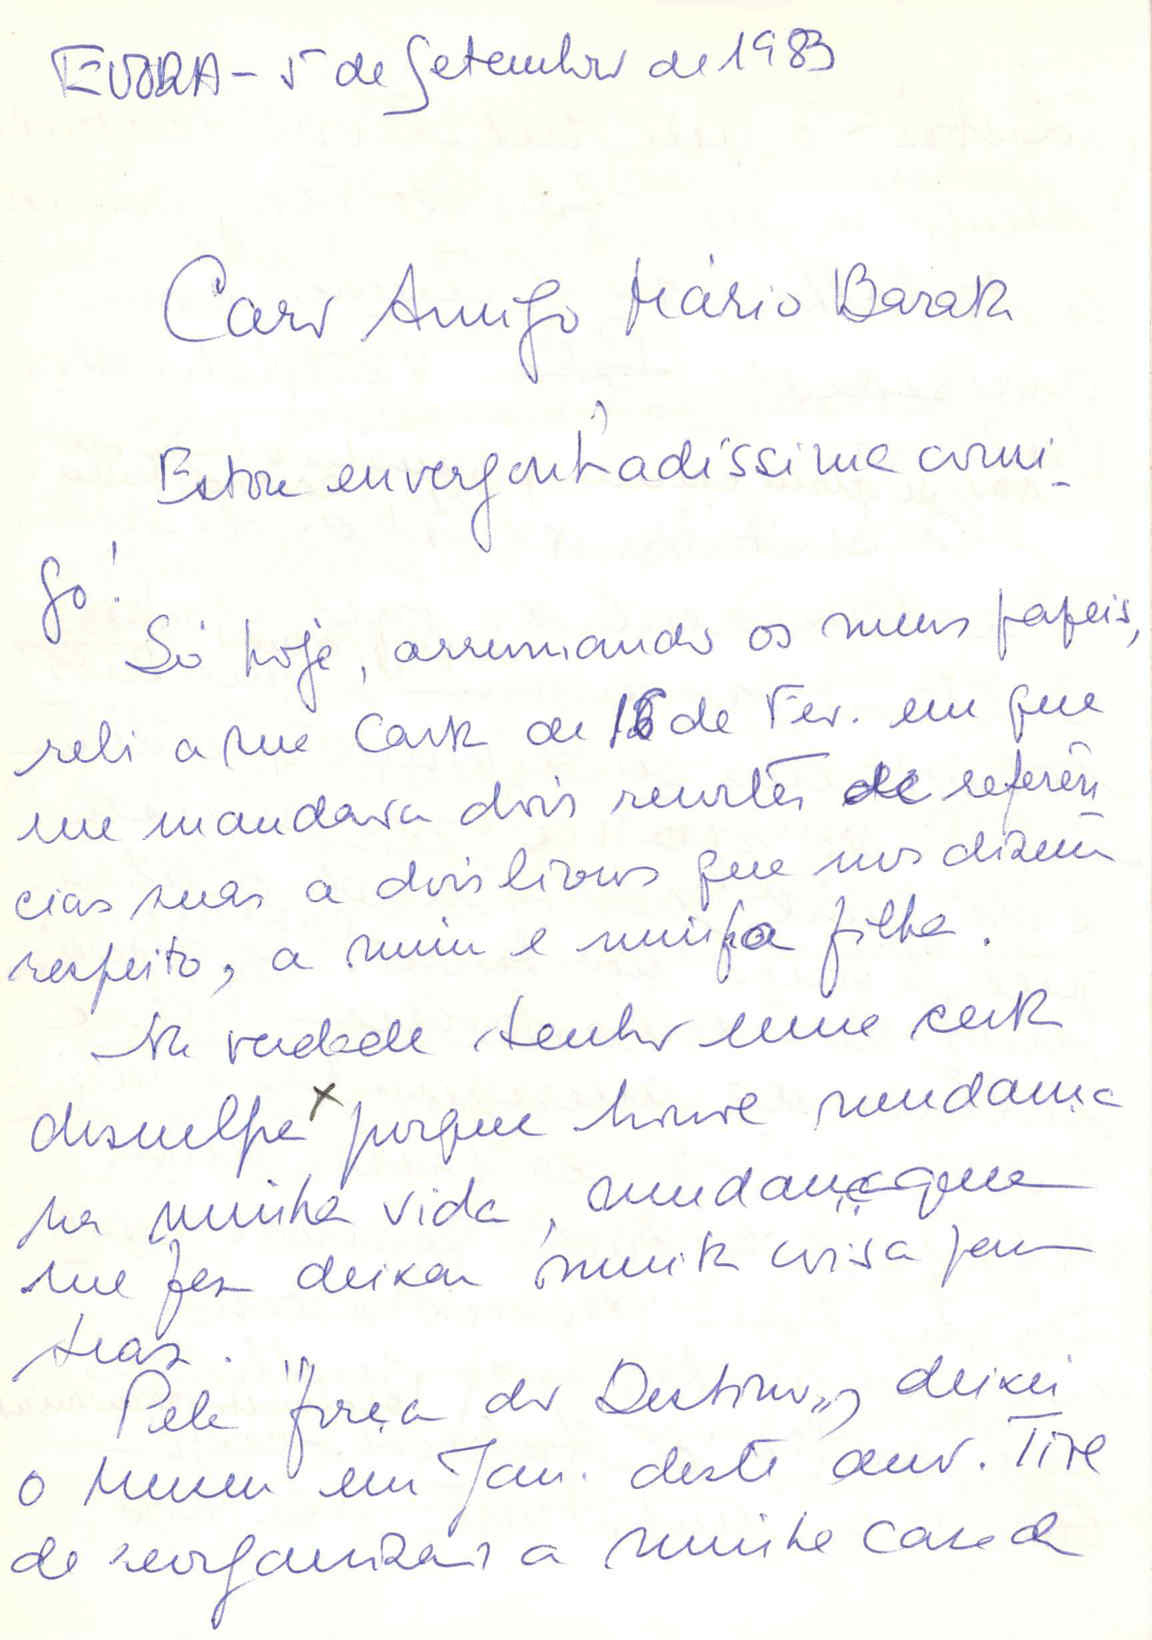 EVORA - 5 de Setembro de 1983
Caro Amigo Mário Barata
Estou envergonhadíssima comi-
go!
Só hoje, arrumando os meus papeis,
reli a sua carta de 16 de Fev. em que
me mandava dois recortes de referên
cias suas a dois livros que nos dizem
respeito, a mim e minha filha.
Na verdade tenho uma certa
desculpa x porque houve mudança
na minha vida, mudança que
me fez deixar muita coisa para
tras.
Pela "força do Destino", deixei
o Museu em Jan. deste ano. Tive
de reorganizar a minha casa de